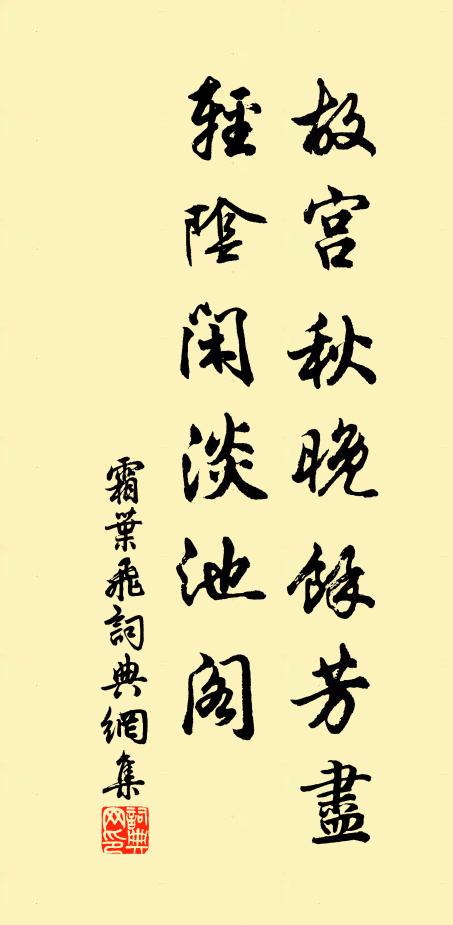 故宮秋晚餘芳盡
輕陰閑淡池閣
霜葉飛詞典網集
詞典网印